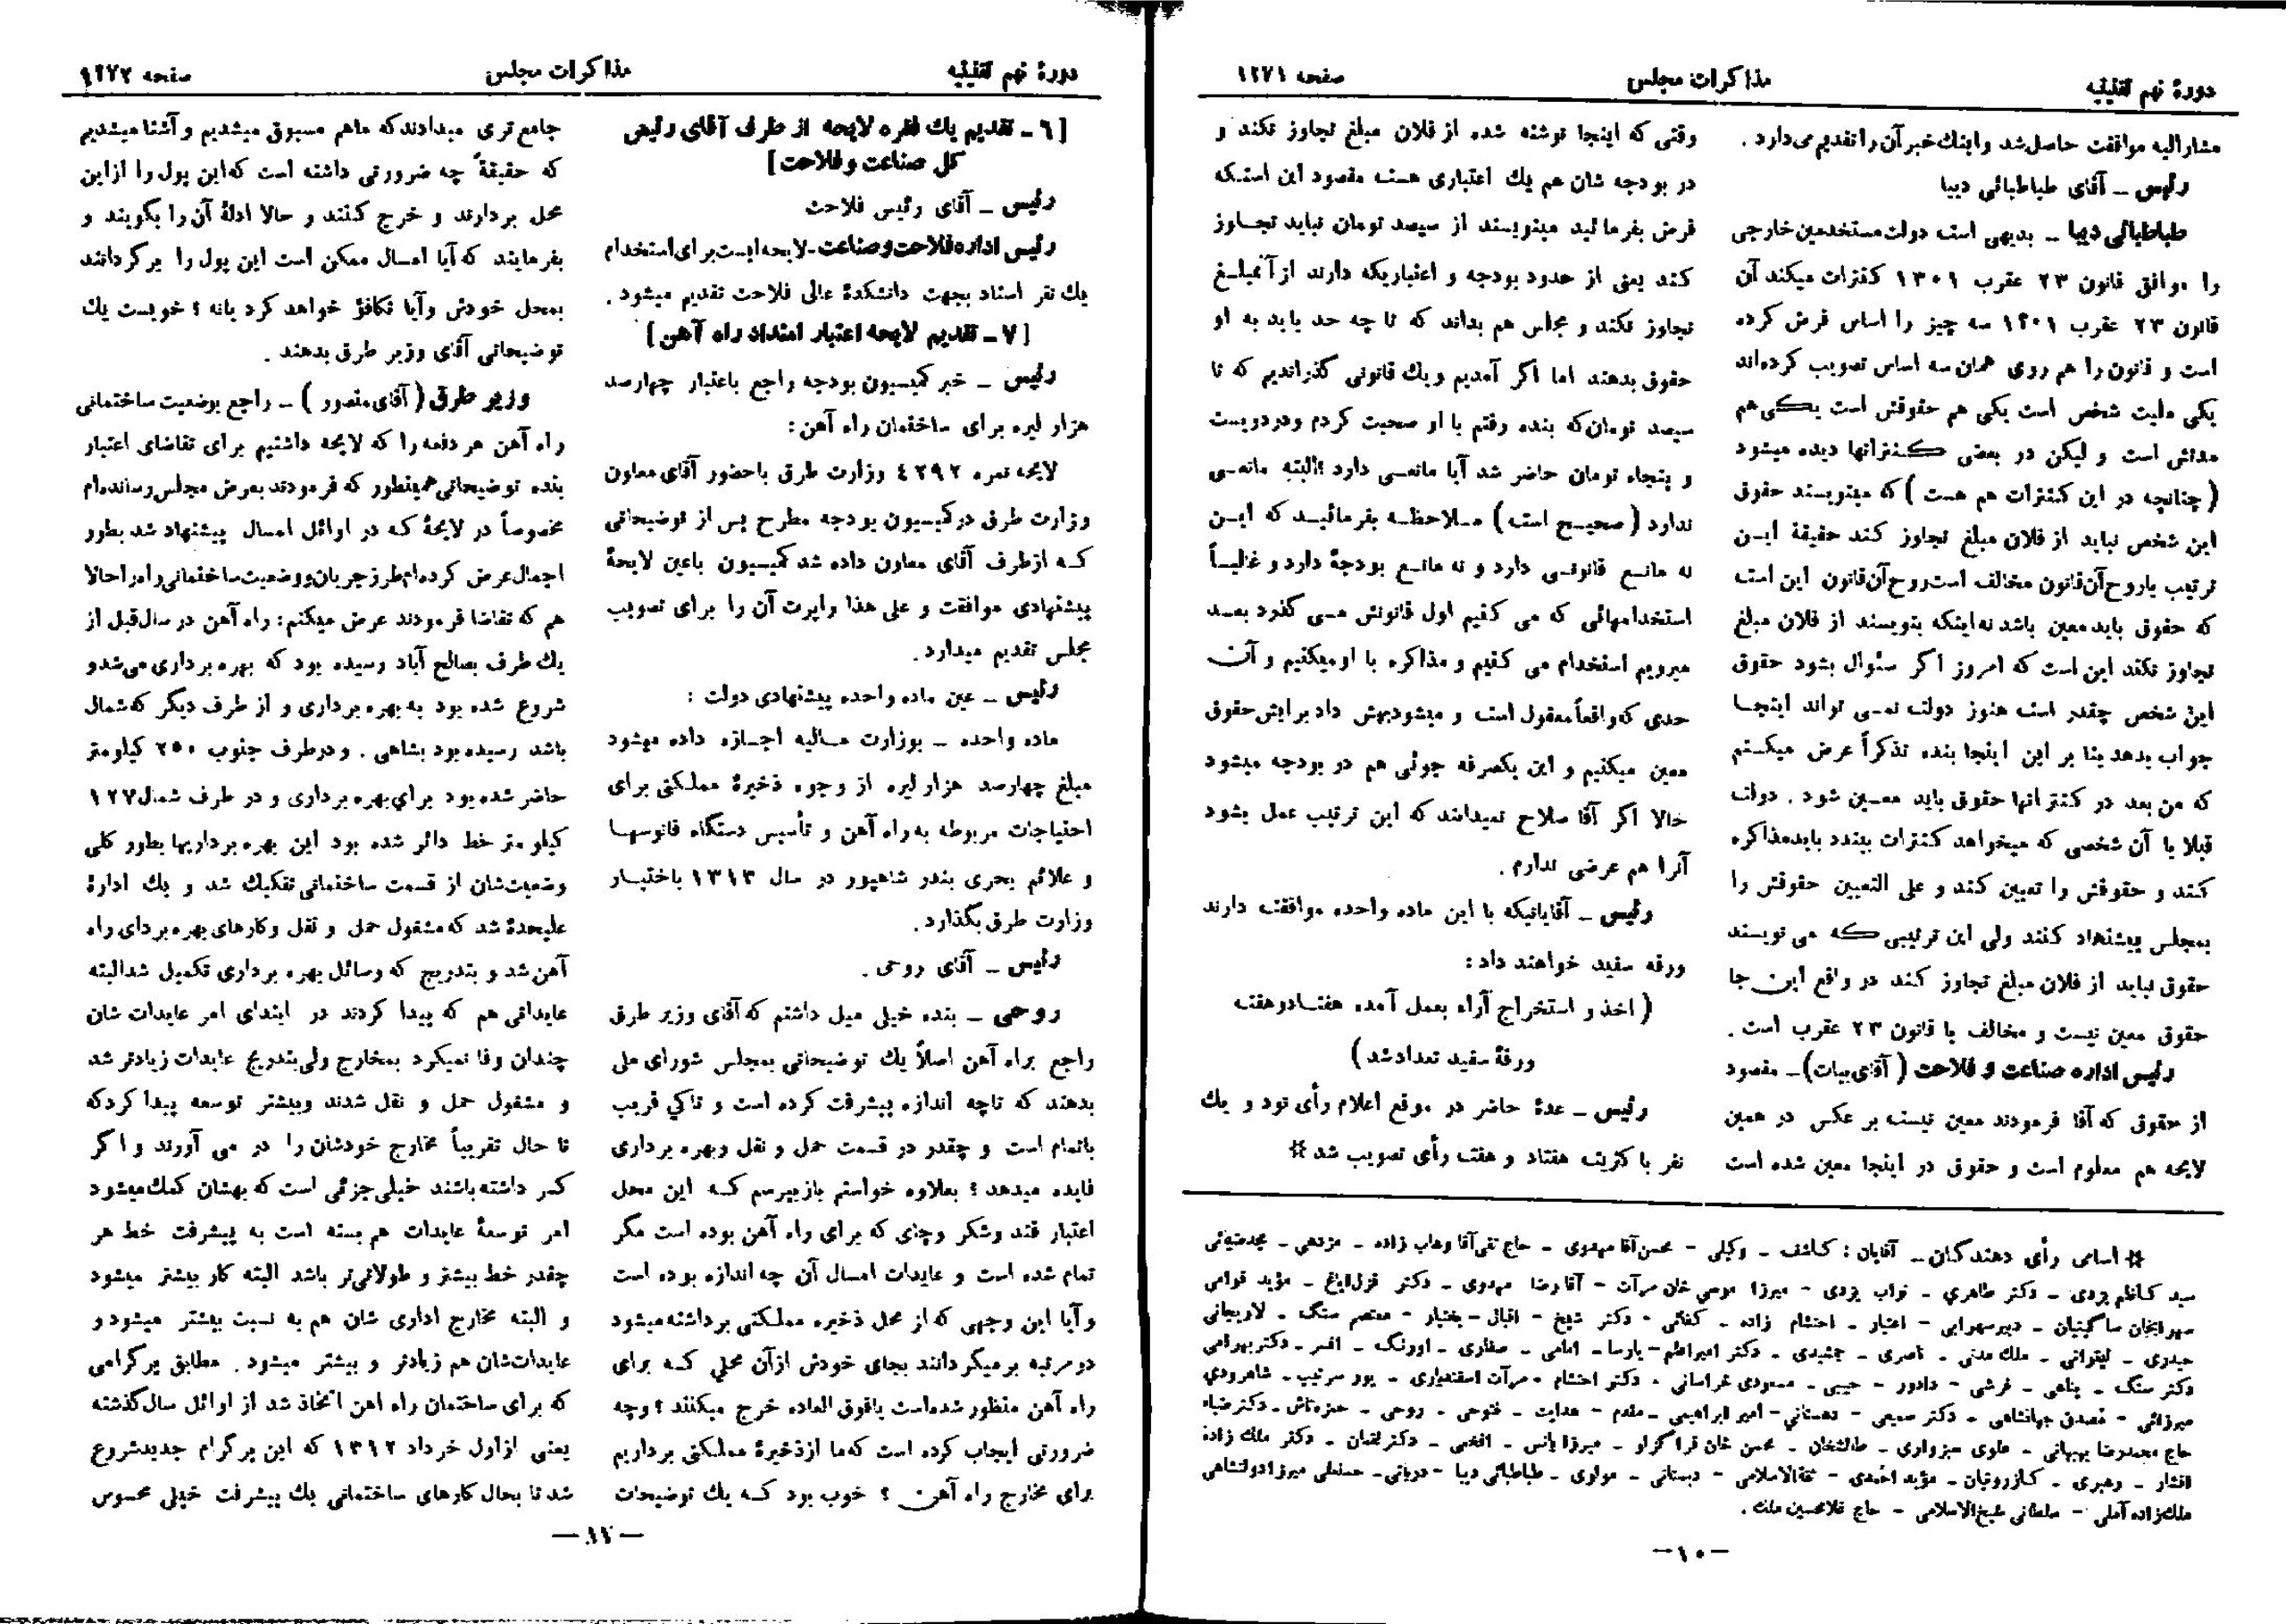 دورهٔ نهم تقنینیه
مذاکرات مجلس
صفحه ۱۲۷۱
مشارالیه موافقت حاصل شد و اینك خبر آن را تقدیم می‌دارد .
رئیس ـ آقای طباطبائی دیبا
طباطبائی دیبا ـ بدیهی است دولت مستخدمین خارجی
را موافق قانون ۲۳ عقرب ۱۳۰۱ کنترات میکند آن
قانون ۲۳ عقرب ۱۳۰۱ سه چیز را اساس فرض کرده
است و قانون را هم روی همان سه اساس تصویب کرده‌اند
یکی ملیت شخص است یکی هم حقوقش است یـکی هم
مدتش است و لیکن در بعضی کـنتراتها دیده میشود
( چنانچه در این کنترات هم هست ) که مینویسند حقوق
این شخص نباید از فلان مبلغ تجاوز کند حقیقة ایـن
ترتیب با روح آن قانون مخالف است روح آن قانون این است
که حقوق باید معین باشد نه اینکه بنویسند از فلان مبلغ
تجاوز نکند این است که امروز اگر سئوال بشود حقوق
این شخص چقدر است هنوز دولت نمـی تواند اینجـا
جواب بدهد بنا بر این اینجا بنده تذکراً عرض میکـنم
که من بعد در کنتراتها حقوق باید معـین شود . دولت
قبلا با آن شخصی که میخواهد کنترات ببندد باید مذاکره
کـند و حقوقش را تعیین کند و علی التعیین حقوقش را
بمجلس پیشنهاد کنند ولی این ترتیبی کـه می نویسند
حقوق نباید از فلان مبلغ تجاوز کند در واقع ایـن جا
حقوق معین نیست و مخالف با قانون ۲۳ عقرب است .
رئیس اداره صناعت و فلاحت ( آقای بیات) ـ مقصود
از حقوق که آقا فرمودند معین نیست بر عکس در همین
لایحه هم معلوم است و حقوق در اینجا معین شده است
وقتی که اینجا نوشته شده از فلان مبلغ تجاوز نکند و
در بودجه شان هم یك اعتباری هست مقصود این استکه
فرض بفرمائید مینویسند از سیصد تومان نباید تجـاوز
کند یعنی از حدود بودجه و اعتباریکه دارند از آنمبلـغ
تجاوز نکند و مجلس هم بداند که تا چه حد باید به او
حقوق بدهند اما اگر آمدیم و یك قانونی گذراندیم که تا
سیصد تومان که بنده رفتم با او صحبت کردم و در دویست
و پنجاه تومان حاضر شد آیا مانعـی دارد ؟ البته مانعـی
ندارد ( صحیـح است ) مـلاحظـه بفرمائیـد که ایـن
نه مانـع قانونـی دارد و نه مانـع بودجهٔ دارد و غالبـاً
استخدامهائی که می کنیم اول قانونش مـی گذرد بعـد
میرویم استخدام می کنیم و مذاکره با او میکنیم و آن
حدی که واقعاً معقول است و میشود بهش داد برایش حقوق
معین میکنیم و این یکصرفه جوئی هم در بودجه میشود
حالا اگر آقا صلاح نمیدانند که این ترتیب عمل بشود
آنرا هم عرضی ندارم .
رئیس ـ آقایانیکه با این ماده واحده موافقت دارند
ورقه سفید خواهند داد :
( اخذ و استخراج آراء بعمل آمده هفتـاد و هفت
ورقهٔ سفید تعداد شد )
رئیس ـ عدهٔ حاضر در موقع اعلام رأی نود و یك
نفر با کثریت هفتاد و هفت رأی تصویب شد #
# اسامی رأی دهندگان ـ آقایان : کاشف ـ وکیلی - محسن آقا مهدوی - حاج تقی آقا وهاب زاده ـ مژدهی ـ مجدضیائی
سید کاظم یزدی ـ دکتر طاهری ـ نواب یزدی - میرزا موسی خان مرآت - آقا رضا مهدوی ـ دکتر قزل‌ایاغ ـ مؤید قوامی
سهرابخان ساگینیان ـ دبیرسهرابی - اعتبار ـ احتشام زاده ـ کفائی - دکتر شیخ - اقبال - بختیار - معتصم سنگ ـ لاریجانی
حیدری ـ لیقوانی ـ ملك مدنی ـ ناصری ـ جمشیدی ـ دکتر امیراعلم - پارسا ـ امامی ـ صفاری ـ اورنگ ـ افسر ـ دکتر بهرامی
دکتر سنگ ـ پناهی ـ فرشی - دادور - حبیبی ـ مسعودی خراسانی - دکتر احتشام - مرآت اسفندیاری ـ پور سرتیپ ـ شاهرودی
میرزائی - مصدق جهانشاهی ـ دکتر سمیعی - دهستانی - امیر ابراهیمی ـ مقدم - هدایت ـ فتوحی ـ روحی ـ حمزه‌تاش ـ دکتر ضیاء
حاج محمدرضا بهبهانی ـ علوی سبزواری ـ طالشخان ـ محسن خان قراگزلو ـ میرزا یانس ـ افخمی ـ دکتر لقمان ـ دکتر ملك زاده
افشار ـ رهبری ـ کازرونیان ـ مؤید احمدی - ثقةالاسلامی - دبستانی - مولوی ـ طباطبائی دیبا - دربانی ـ حسنعلی میرزا دولتشاهی
ملك‌زاده آملی - سلطانی شیخ‌الاسلامی - حاج غلامحسین ملك .
—۱۰—
دورهٔ نهم تقنینیه
مذاکرات مجلس
صفحه ۱۲۷۲
[ ۶ ـ تقدیم یك فقره لایحه از طرف آقای رئیس
کل صناعت و فلاحت ]
رئیس ـ آقای رئیس فلاحت
رئیس اداره فلاحت و صناعت ـ لایحه ایست برای استخدام
یك نفر استاد بجهت دانشکدهٔ عالی فلاحت تقدیم میشود .
[ ۷ ـ تقدیم لایحه اعتبار امتداد راه آهن ]
رئیس ـ خبر کمیسیون بودجه راجع باعتبار چهارصد
هزار لیره برای ساختمان راه آهن :
لایحه نمره ٤٢٩٢ وزارت طرق با حضور آقای معاون
وزارت طرق در کمیسیون بودجه مطرح پس از توضیحاتی
کـه از طرف آقای معاون داده شد کمیسیون با عین لایحهٔ
پیشنهادی موافقت و علی هذا راپرت آن را برای تصویب
مجلس تقدیم میدارد .
رئیس ـ عین ماده واحده پیشنهادی دولت :
ماده واحده ـ بوزارت مـالیه اجـازه داده میشود
مبلغ چهارصد هزار لیره از وجوه ذخیرهٔ مملکتی برای
احتیاجات مربوطه به راه آهن و تأسیس دستگاه فانوسهـا
و علائم بحری بندر شاهپور در سال ۱۳۱۳ باختیـار
وزارت طرق بگذارد .
رئیس ـ آقای روحی .
روحی ـ بنده خیلی میل داشتم که آقای وزیر طرق
راجع براه آهن اصلاً یك توضیحاتی بمجلس شورای ملی
بدهند که تا چه اندازه پیشرفت کرده است و تاکی قریب
باتمام است و چقدر در قسمت حمل و نقل و بهره برداری
فایده میدهد ؟ بعلاوه خواستم باز بپرسم کـه این محل
اعتبار قند و شکر و چای که برای راه آهن بوده است مگر
تمام شده است و عایدات امسال آن چه اندازه بوده است
و آیا این وجهی که از محل ذخیره مملکتی برداشته میشود
دو مرتبه برمیگردانند بجای خودش از آن محلی کـه برای
راه آهن منظور شده‌است یا فوق العاده خرج میکنند ؟ و چه
ضرورتی ایجاب کرده است که ما از ذخیرهٔ مملکتی برداریم
برای مخارج راه آهـن ؟ خوب بود کـه یك توضیحات
جامع تری میدادند که ماهم مسبوق میشدیم و آشنا میشدیم
که حقیقةً چه ضرورتی داشته است که این پول را از این
محل بردارند و خرج کنند و حالا ادلهٔ آن را بگویند و
بفرمایند که آیا امسال ممکن است این پول را برگردانند
بمحل خودش و آیا تکافؤ خواهد کرد یا نه ؟ خوبست یك
توضیحاتی آقای وزیر طرق بدهند .
وزیر طرق ( آقای منصور ) ـ راجع بوضعیت ساختمانی
راه آهن هر دفعه را که لایحه داشتیم برای تقاضای اعتبار
بنده توضیحاتی همینطور که فرمودند بعرض مجلس رسانده‌ام
مخصوصاً در لایحهٔ کـه در اوائل امسال پیشنهاد شد بطور
اجمال عرض کرده‌ام طرز جریان و وضعیت ساختمانی را و حالا
هم که تقاضا فرمودند عرض میکنم : راه آهن در سال قبل از
یك طرف بصالح آباد رسیده بود که بهره برداری می‌شد و
شروع شده بود به بهره برداری و از طرف دیگر که شمال
باشد رسیده بود بشاهی . و در طرف جنوب ۲۵۰ کیلومتر
حاضر شده بود برای بهره برداری و در طرف شمال ۱۲۷
کیلو متر خط دائر شده بود این بهره برداریها بطور کلی
وضعیت‌شان از قسمت ساختمانی تفکیك شد و یك ادارهٔ
علیحدهٔ شد که مشغول حمل و نقل و کارهای بهره برداری راه
آهن شد و بتدریج که وسائل بهره برداری تکمیل شد البته
عایداتی هم که پیدا کردند در ابتدای امر عایدات شان
چندان وفا نمیکرد بمخارج ولی بتدریج عایدات زیادتر شد
و مشغول حمل و نقل شدند و بیشتر توسعه پیدا کرد که
تا حال تقریباً مخارج خودشان را در می آورند و اگر
کسر داشته باشند خیلی جزئی است که بهشان کمك میشود
امر توسعهٔ عایدات هم بسته است به پیشرفت خط هر
چقدر خط بیشتر و طولانی‌تر باشد البته کار بیشتر میشود
و البته مخارج اداری شان هم به نسبت بیشتر میشود و
عایدات‌شان هم زیادتر و بیشتر میشود . مطابق پرگرامی
که برای ساختمان راه اهن اتخاذ شد از اوائل سال گذشته
یعنی از اول خرداد ۱۳۱۲ که این پرگرام جدید شروع
شد تا بحال کارهای ساختمانی یك پیشرفت خیلی محسوس
—۱۱—